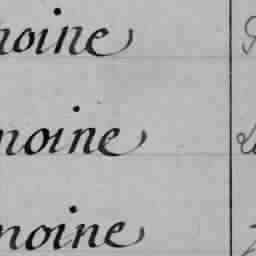 moine
moine
moine